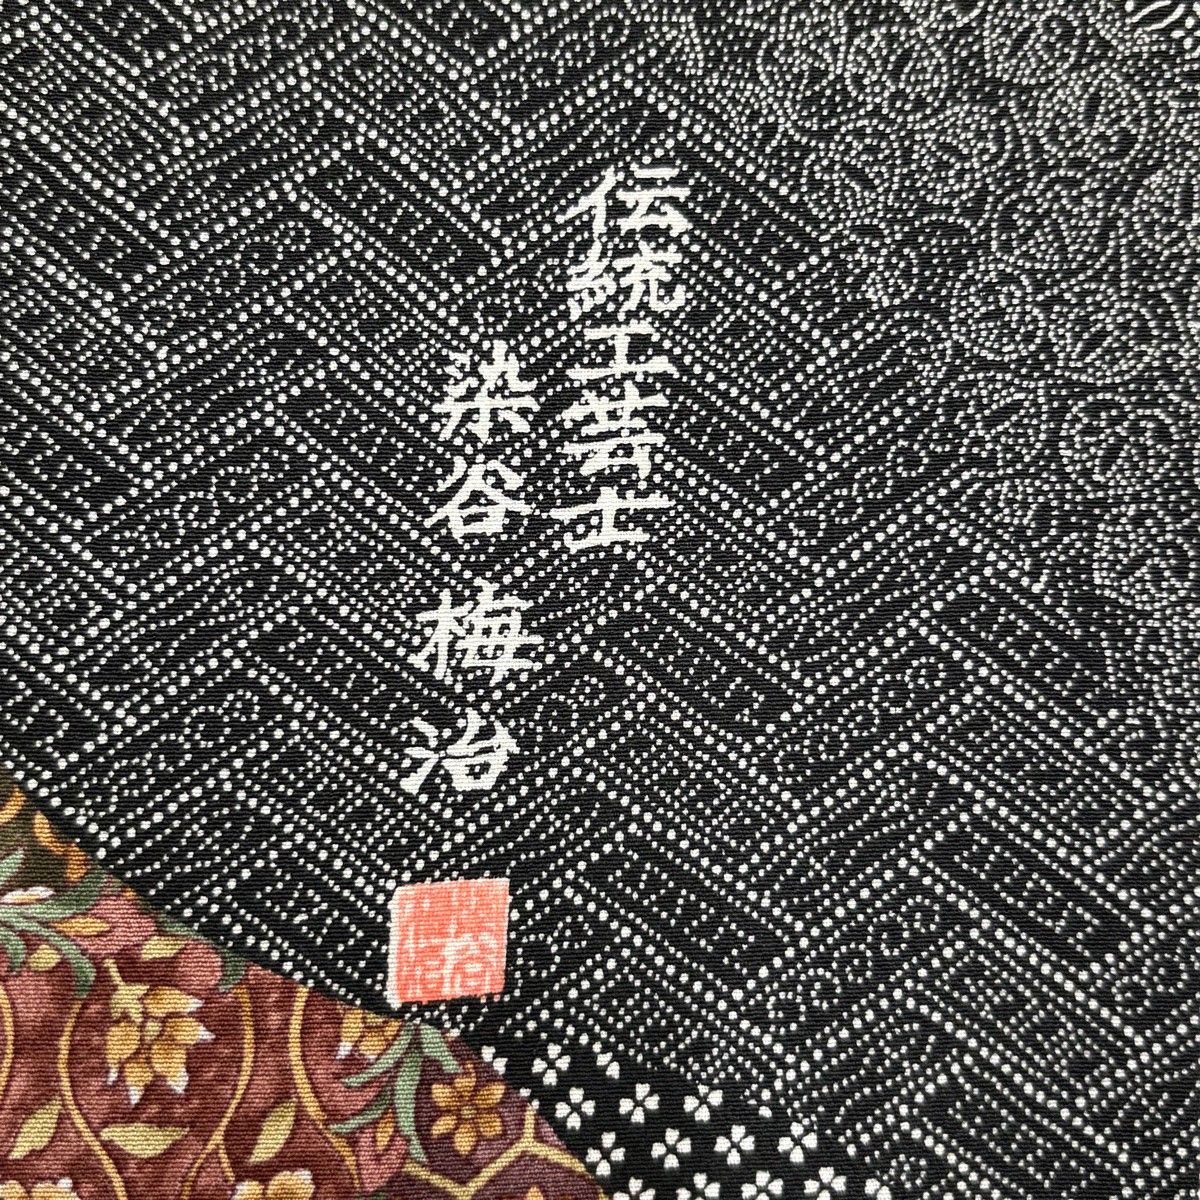 伝統工芸士
染谷 梅治